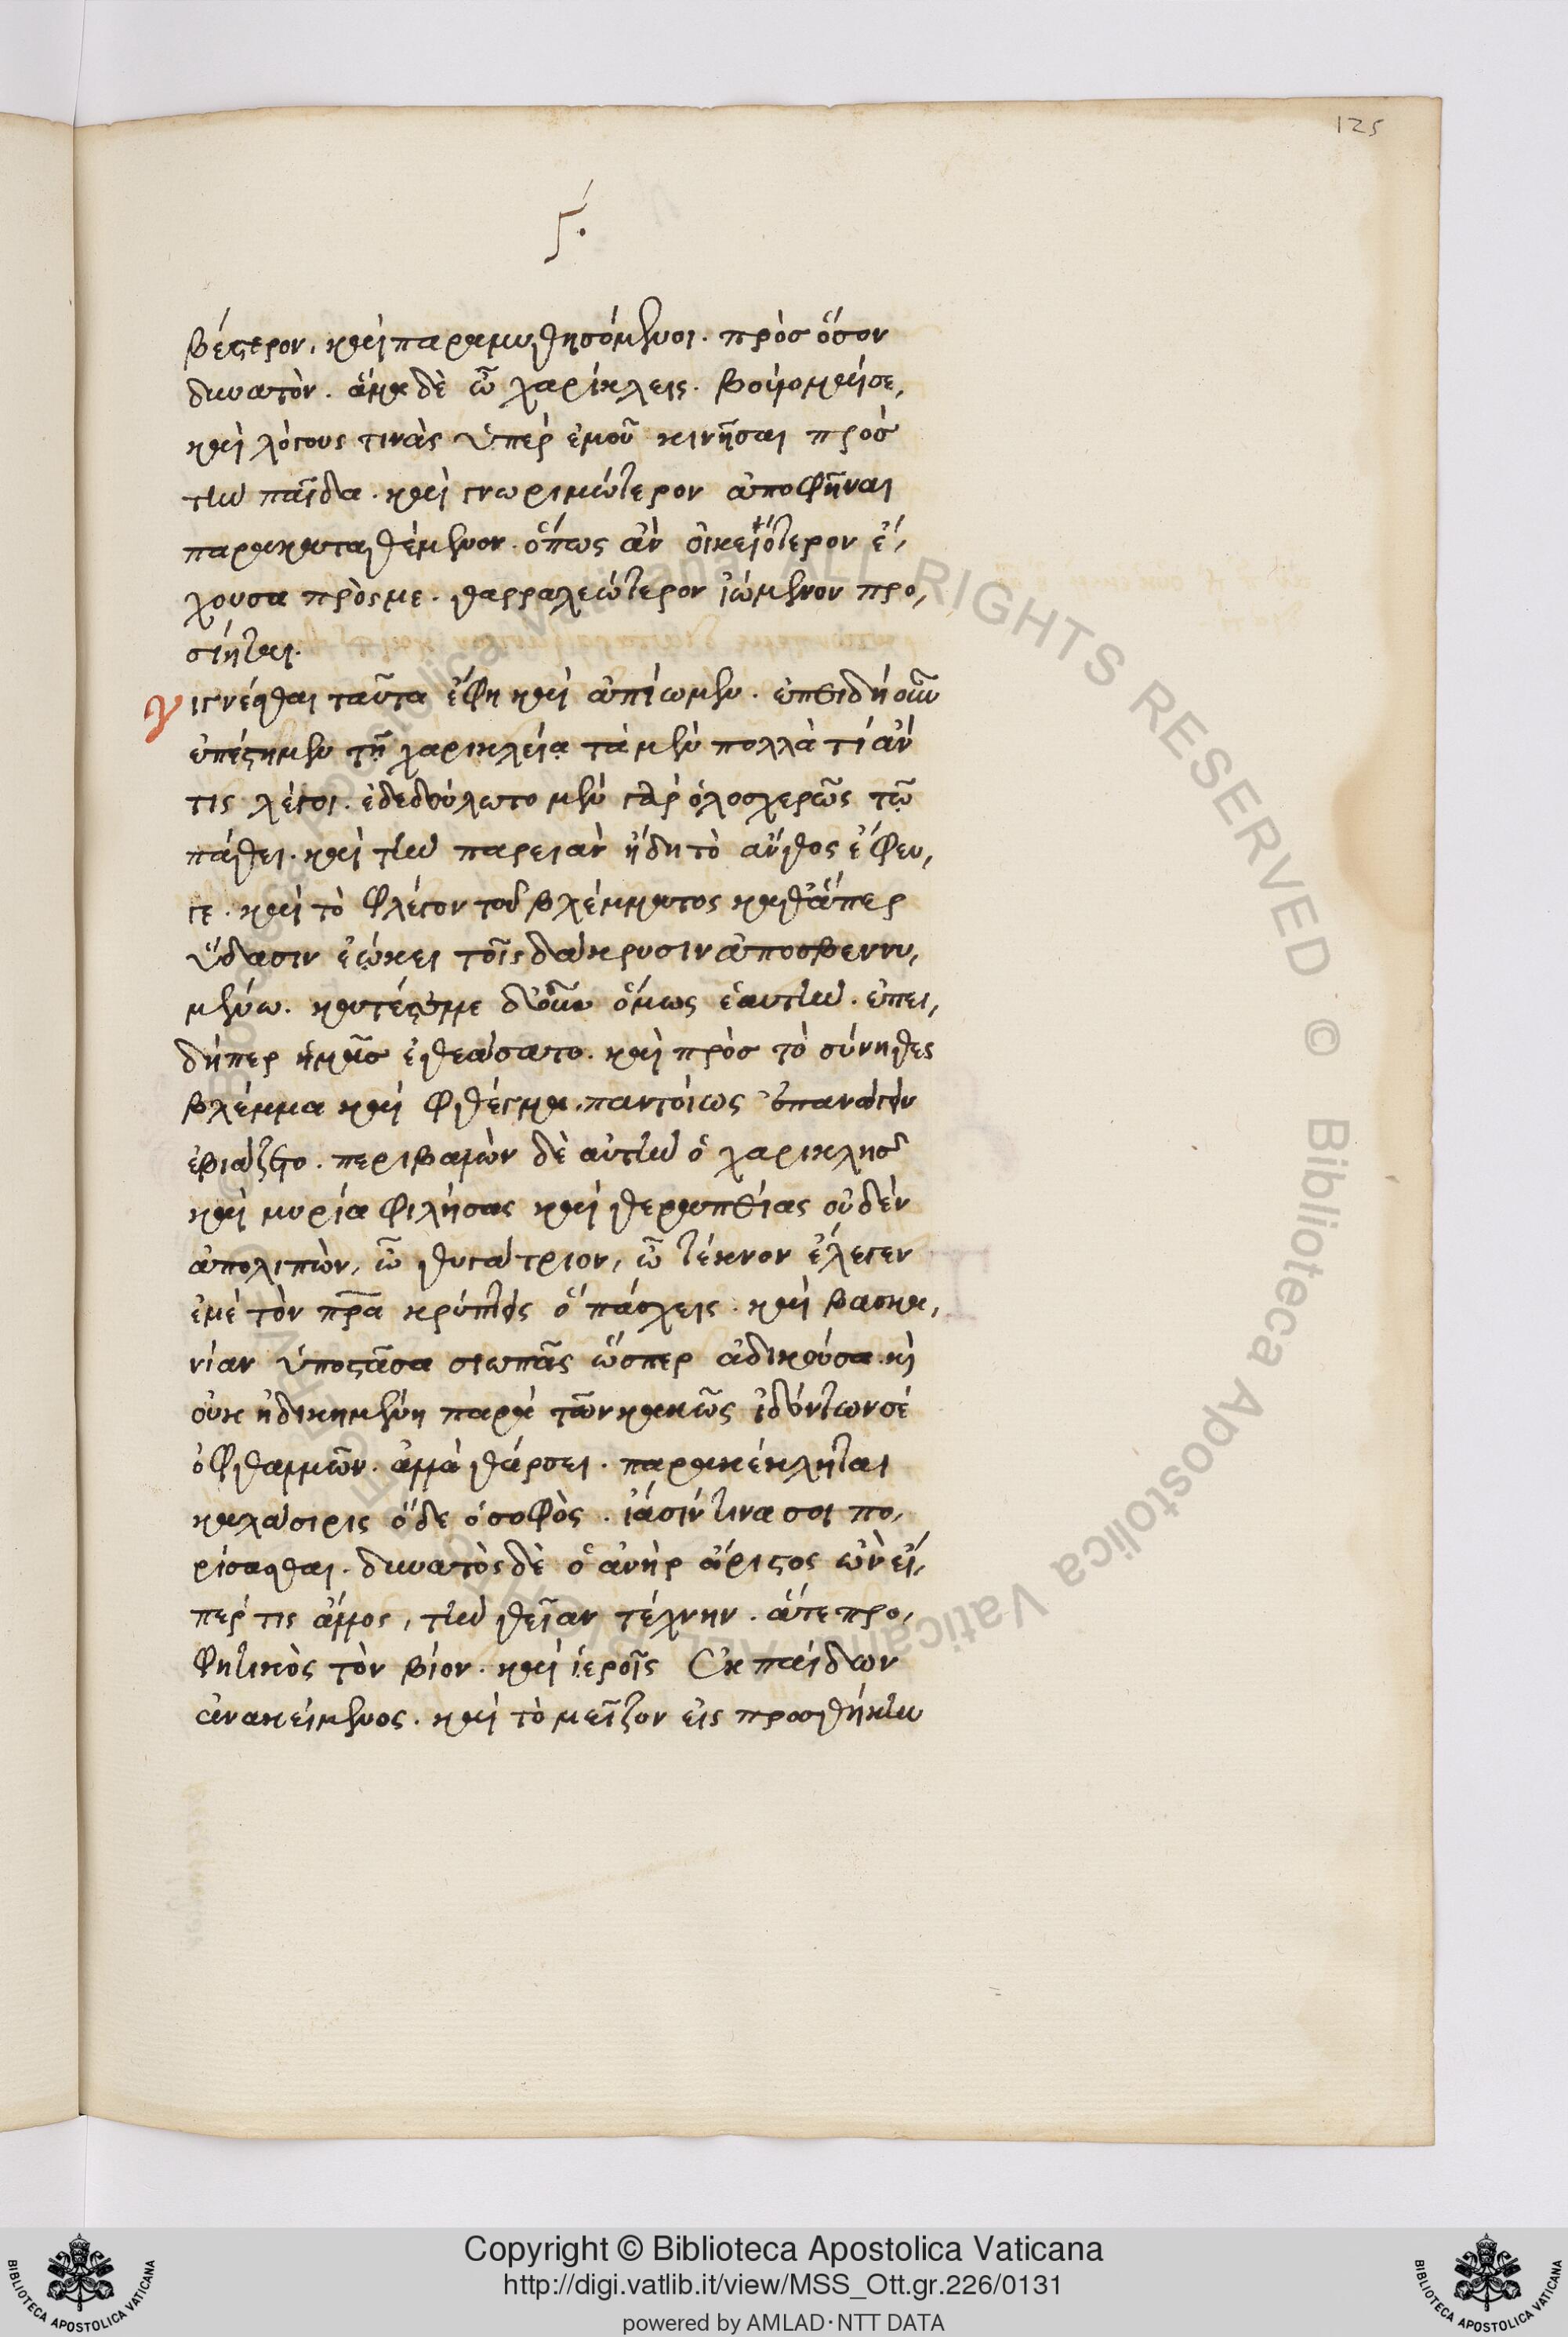 125
ϛ´.
βέστερον, καὶ παραμυθησόμενοι. πρὸσ ὅσον
δυνατὸν. ἅμα δὲ ὦ χαρίκλεις. βουλομαί σε,
καὶ λόγους τινὰς ὑπὲρ ἐμοῦ κινῆσαι πρὸσ
τὴν παῖδα. καὶ γνωριμώτερον ἀποφῆναι
παρακαταθέμενον. ὅπως ἂν οἰκειότερον ἔ,
χουσα πρὸς με. θαρραλεώτερον ἰώμενον προ,
σίηται.
γιγνέσθαι ταῦτα ἔφη καὶ ἀπίωμεν. ἐπειδὴ οὖν
ἐπέστημεν τῇ χαρικλείᾳ τὰ μὲν πολλὰ τί ἄν
τις λέγοι. ἐδεδούλωτο μὲν γὰρ ὁλοσχερῶς τῷ
πάθει. καὶ τὴν παρειὰν ἤδη τὸ ἄνθος ἔφευ,
γε. καὶ τὸ φλέγον τοῦ βλέμματος καθάπερ
ὕδασιν ἐῴκει τοῖς δάκρυσιν ἀποσβεννυ,
μένῳ. κατέστελλε δ' οὖν ὅμως ἑαυτὴν. ἐπει,
δήπερ ἡμᾶσ ἐθεάσατο. καὶ πρὸσ τὸ σύνηθες
βλέμμα καὶ φθέγμα. παντοίως ἐπανάγειν
ἐβιάζετο. περιβαλὼν δὲ αὐτὴν ὁ χαρικλῆσ
καὶ μυρία φιλήσας καὶ θεραπείας οὐδὲν
ἀπολιπὼν, ὦ θυγάτριον, ὦ τέκνον ἔλεγεν
ἐμὲ τὸν πρα κρύπτεις ὃ πάσχεις. καὶ βασκα,
νίαν ὑποστᾶσα σιωπᾶς ὥσπερ ἀδικοῦσα. κὶ
οὐκ ἠδικημένη παρὰ τῶν κακῶς ἰδόντων σέ
ὀφθαλμῶν. ἀλλὰ θάρσει. παρακέκληται
καλάσιρις ὅδε ὁ σοφὸς. ἴασίν τινα σοι πο,
ρίσασθαι. δυνατὸς δὲ ὁ ἀνὴρ ἄριστος ὢν εἴ,
περ τις ἄλλος, τὴν θεῖαν τέχνην. ἅτε προ,
φητικὸς τὸν βίον. καὶ ἱεροῖς ἐκ παίδων
ἀνακείμενος. καὶ τὸ μεῖζον εἰς προσθήκην
Copyright © Biblioteca Apostolica Vaticana
http://digi.vatlib.it/view/MSS_Ott.gr.226/0131
powered by AMLAD·NTT DATA
BIBLIOTECA APOSTOLICA VATICANA
BIBLIOTECA APOSTOLICA VATICANA